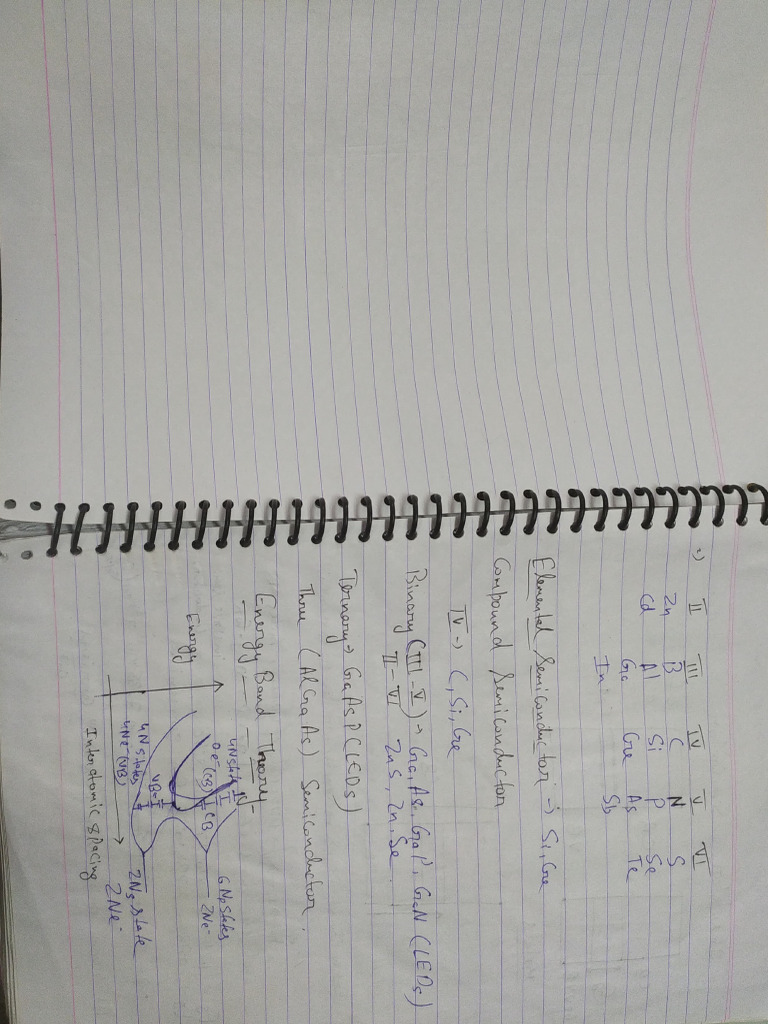 =) II III IV V VI
Zn B C N S
Cd Al Si P Se
Ga Ge As Te
In Sb
Elemental Semiconductor → Si, Ge
Compound Semiconductor
IV → C, Si, Ge
Binary (III-V) → GaAs, GaP, GaN (LEDs)
II-VI ZnS, ZnSe
Ternary → GaAsP (LEDs)
Three (AlGaAs) Semiconductor.
Energy Band Theory
Energy
4N states
0e⁻ (CB) CB
6Np states
2Ne⁻
VB
4N states
4Ne⁻ (VB)
2Ns state
2Ne⁻
Interatomic spacing